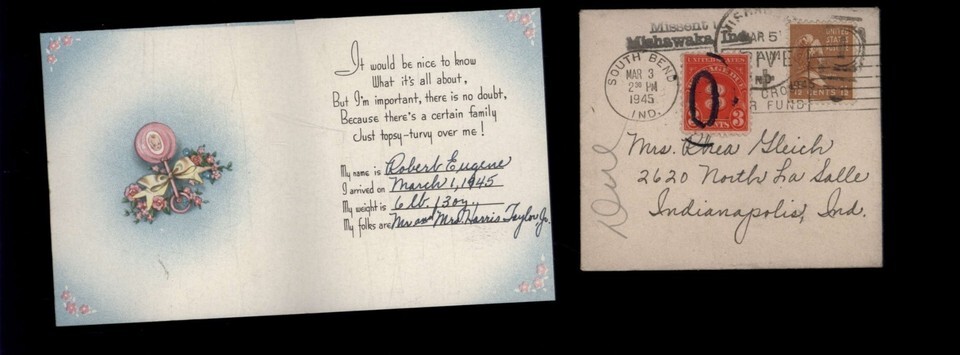 It would be nice to know
What it's all about,
But I'm important, there is no doubt,
Because there's a certain family
Just topsy-turvy over me!
My name is Robert Eugene
I arrived on March 1, 1945
My weight is 6 lb. 13 oz.
My folks are Mr and Mrs. Harris Taylor, Jr.
Missent
Mishawaka Ind.
SOUTH BEND
MAR 3
2 30 PM
1945
IND.
MAR 5
UNITED STATES
POSTAGE DUE
0
CENTS 3
UNITED
STATES
1½ CENTS 1½
CROSS
R FUND
Due
Mrs. Rhea Gleich
2620 North La Salle
Indianapolis, Ind.